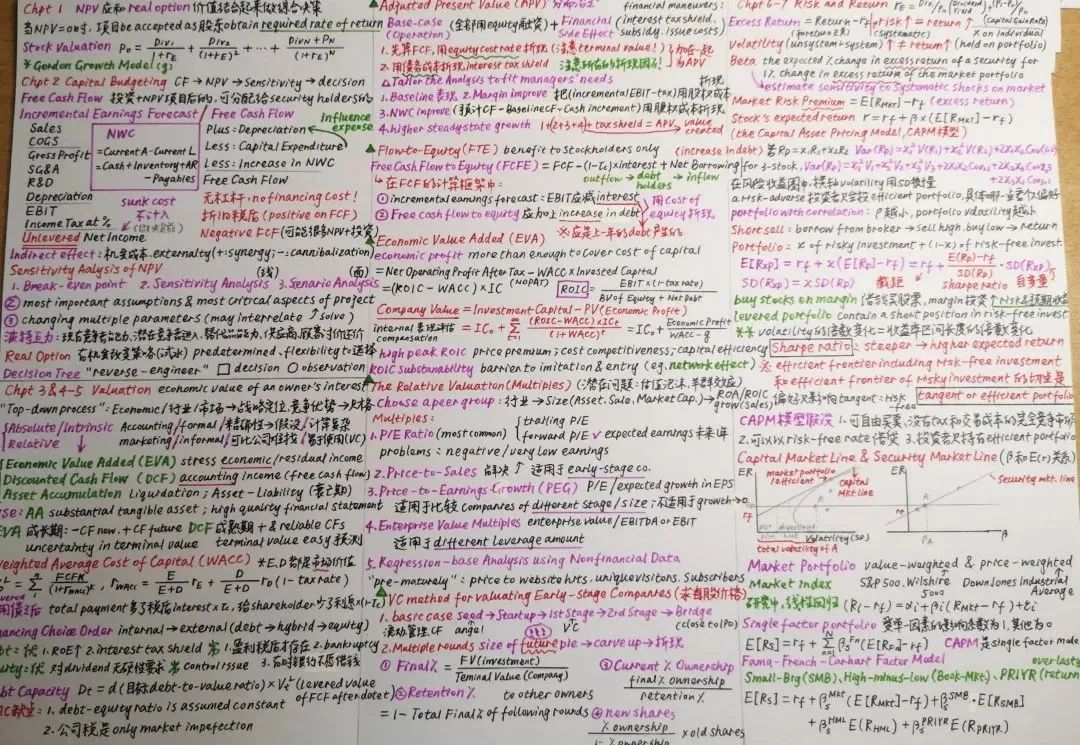 Chpt 1 NPV 应和real option价值结合起来做综合决策
当NPV=0时,项目be accepted as股东obtain required rate of return
Stock Valuation P0 = Div1/(1+rE) + Div2/(1+rE)² + ... + DivN+PN/(1+rE)^N
* Gordon Growth Model (g)
Chpt 2 Capital Budgeting CF→NPV→Sensitivity→decision
Free Cash Flow 投资+NPV项目后的,可分配给security holders的
Incremental Earnings Forecast / Free Cash Flow
Sales
COGS
Gross Profit
SG&A
R&D
Depreciation
EBIT
Income Tax at %
Unlevered Net Income
NWC
=Current A-Current L
=Cash+Inventory+AR
-Payables
sunk cost
不计入
influence
expense
Plus: Depreciation
Less: Capital Expenditure
Less: Increase in NWC
Free Cash Flow
无杠杆, no financing cost!
折旧抵税 (positive on FCF)
Negative FCF (可能很多NPV+投资)
Indirect effect: 机会成本, externality (+: synergy; -: cannibalization)
Sensitivity Aalysis of NPV (线) (面)
1. Break-even point 2. Sensitivity Analysis 3. Senario Analysis
② most important assumptions & most critical aspects of project
③ changing multiple parameters (may interrelate ↑ solve)
Real Option predetermined, flexibility to选择
Decision Tree "reverse-engineer" □ decision ○ observation
Chpt 3&4-5 Valuation economic value of an owner's interest
"Top-down process": Economic/行业/市场→战略定位,竞争优势→风格
Absolute/Intrinsic Accounting/formal/精确性→假设/计算复杂
Relative marketing/informal/可比公司难找/易于使用(VC)
Economic Value Added (EVA) stress economic/residual income
Discounted Cash Flow (DCF) accounting income (free cash flow)
Asset Accumulation Liquidation; Asset-Liability (衰亡期)
AA substantial tangible asset; high quality financial statement
EVA 成长期: -CF now, +CF future DCF 成熟期 + & reliable CFs
uncertainty in terminal value terminal value easy预测
Weighted Average Cost of Capital (WACC) *E,D都是市场价值
rwacc = E/(E+D) rE + D/(E+D) rD (1-tax rate)
total payment多了税后interest×tc, 给shareholder少了利息×(1-tc)
Financing Choice Order internal→external (debt→hybrid→equity)
1. ROE↑ 2. interest tax shield 劣 1. 盈利税后才存在 2. bankruptcy
对dividend无硬性要求 劣 control issue
Debt Capacity Dt = d(目标debt-to-value ratio) × Vt^L (levered value
of FCF after date t)
1. debt-equity ratio is assumed constant
2. 公司税是only market impefection
Adjusted Present Value (APV) 分部估值
Base-case (全部用equity融资) + Financial
(Operation) Side Effects
financial maneuvers:
(interest tax shield,
subsidy, issue costs)
1. 先算FCF,用equity cost rate折现 (注意terminal value!) 加在一起
2. 用债务成本折现interest tax shield 注意所在的折现因子! 为APV
Tailor the Analysis to fit managers' needs 折现
1. Baseline表现 2. Margin improve 把(incremental EBIT-tax)用股权成本
3. NWC improve (预计CF-Baseline CF-Cash increment)用股权成本折现
4. higher steady state growth 1+(2+3+4)+tax shield=APV value
created
Flow-to-Equity (FTE) benefit to stockholders only (increase in debt)
Free Cash Flow to Equity (FCFE) = FCF - (1-tc)×interest + Net Borrowing
outflow → debt
holders → inflow
在FCF的计算框架中:
① incremental earnings forecast: EBIT应减interest
② Free cash flow to equity应加上increase in debt
用Cost of
equity折现
※应是上一年的debt产生的
Economic Value Added (EVA)
economic profit more than enough to cover cost of capital
= Net Operating Profit After Tax - WACC × Invested Capital
= (ROIC-WACC)×IC (NOPAT) ROIC = EBIT×(1-tax rate)/BV of Equity + Net Debt
Company Value = Investment Capital + PV(Economic Profit)
internal 表现评估 = IC0 + Σ (ROIC-WACC)×ICt/(1+WACC)^t = IC0 + Economic Profit/WACC-g
compensation
high peak ROIC price premium; cost competitiveness; capital efficiency
ROIC substanability barrier to imitation & entry (eg. network effect)
The Relative Valuation (Multiples) (潜在问题: 估值泡沫,羊群效应)
Choose a peer group: 行业→Size(Asset, Sale, Market Cap.)→ROA/ROIC
grow(sales)
Multiples:
1. P/E Ratio (most common) trailing P/E
forward P/E ✓ expected earnings未来1年
problems: negative/very low earnings
2. Price-to-Sales 解决↑ 适用于early-stage co.
3. Price-to-Earnings Growth (PEG) P/E/expected growth in EPS
适用于比较Companies of different stage/size; 不适用于growth→0
4. Enterprise Value Multiples enterprise value/EBITDA or EBIT
适用于different leverage amount
5. Regression-base Analysis using Nonfinancial Data
"pre-maturely": price to website hits, unique visitors, Subscribers
VC method for valuating Early-Stage Companies
1. basic case seed→Startup→1st Stage→2rd Stage→Bridge
angel VC (close to IPO)
2. Multiple rounds size of future pie→carve up→折现
① Final% = FV(investment)/Teminal Value(Company)
② Retention% to other owners
= 1-Total Final% of following rounds
③ Current % Ownership
final % ownership/retention%
④ new shares
% ownership/1-% ownership × old shares
Chpt 6-7 Risk and Return
Excess Return = Return - rf, risk↑=return↑
(systematic) X on Individual
Volatility (unsystem+system)↑≠return↑ (hold on portfolio)
Beta the expected % change in excess return of a security for
1% change in excess return of the market portfolio
estimate sensitivity to Systematic shocks on market
Market Risk Premium = E[RMKT]-rf (excess return)
Stock's expected return r = rf + β×(E[RMKT]-rf)
(the Capital Asset Pricing Model, CAPM模型)
若Rp=X1R1+X2R2
for 3-stock,
在风险收益图中,横轴volatility用SD衡量
a risk-adverse投资者只会投efficient portfolio,具体哪一点看个人偏好
portfolio with correlation: ρ越小, portfolio volatility越小
Short sell: borrow from broker→sell high, buy low→return
Portfolio = x of risky investment + (1-x) of risk-free invest.
E[RXP] = rf + x(E[RP]-rf) = rf + E(Rp)-rf/SD(Rp) · SD(RXP)
SD(RXP) = xSD(RP) 截距 sharpe ratio 自变量
buy stocks on margin 借钱买股票, margin投资↑risk&预期收益
levered portfolio contain a short position in risk-free invest
** volatility的倍数变化=收益率区间长度的倍数变化
Sharpe ratio: steeper→higher expected return
※ efficient frontier including risk-free investment
和efficient frontier of risky investment的切点是
偏好只影响tangent: risk free tangent or efficient portfolio
CAPM模型假设 1. 可自由买卖,没有tax和交易成本的完全竞争市场
2. 可以以risk-free rate借贷 3. 投资者只持有efficient portfolio
Capital Market Line & Security Market Line (β和E(r)关系)
ER
market portfolio
(efficient)
capital
mkt. Line
rf
Volatility (SD)
total volatility of A
ER
Security mkt. line
A
rf
βA
Market Portfolio value-weighted & price-weighted
Market Index S&P 500, Wilshire 5000 Dow Jones Industrial
Average
研究中,线性回归 (Ri-rf) = αi + βi(RMKT-rf) + εi
Single factor portfolio 受单一因素的影响系数为1,其他为0
E[Rs] = rf + Σ βs^Fn (E[RFn]-rf) CAPM是single factor model
Fama-French-Carhart Factor Model
Small-Big (SMB), High-minus-low (Book-Mkt), PR1YR (return
over last
E[Rs] = rf + βs^MKT (E[RMKT]-rf) + βs^SMB · E[RSMB]
+ βs^HML E(RHML) + βs^PR1YR E(RPR1YR)